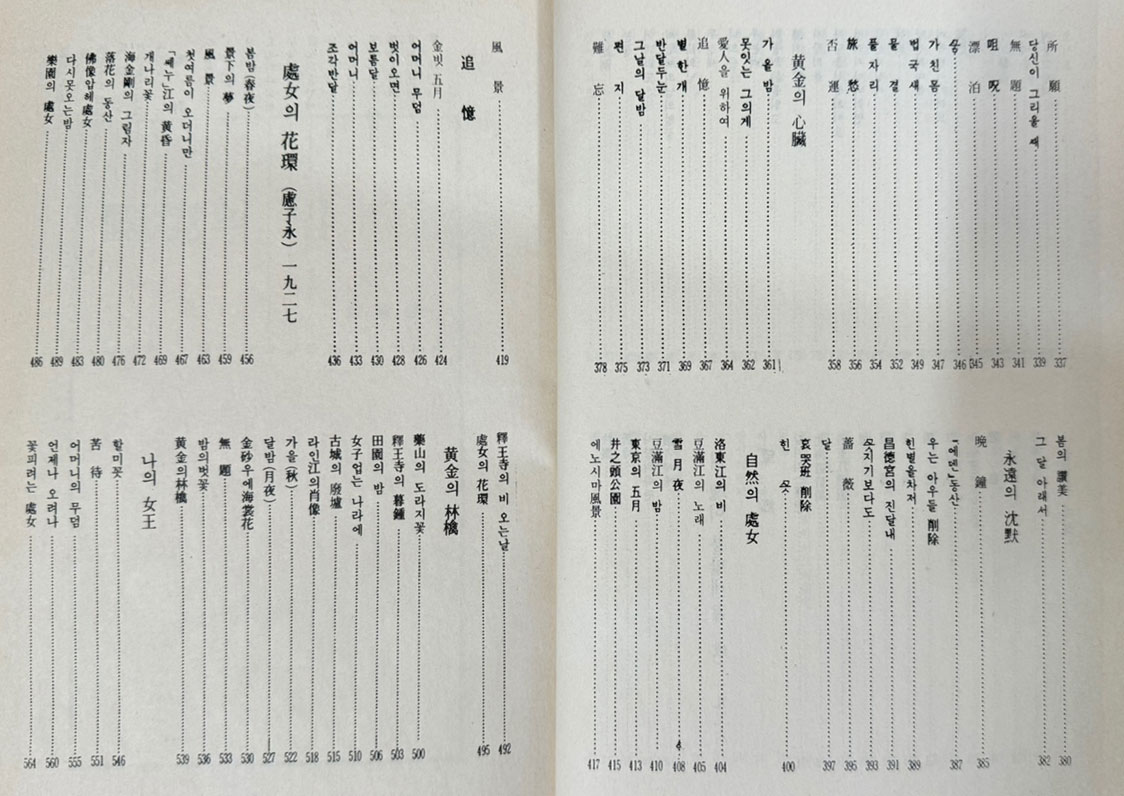 所願 337
당신이 그리울 때 339
無題 341
咀呪 343
漂泊 345
꽁 346
가친 몸 347
법국새 349
물결 352
풀자리 354
旅愁 356
否運 358
黄金의 心臟
가을밤 361
못잇는 그의게 362
愛人을 위하여 364
追憶 367
별한개 369
반달두눈 371
그날의 달밤 373
편지 375
難忘 378
봄의 讚美 380
그 달 아래서 382
永遠의 沈默
晩鐘 385
「에덴」동산 387
우는 아우들 削除
흰별을차저 389
昌德宮의 진달내 391
꽃지기보다도 393
薔薇 395
달 397
哀哭班 削除
힌꽃 400
自然의 處女
洛東江의 비 404
豆滿江의 노래 405
雪月夜 408
豆滿江의 밤 410
東京의 五月 413
井之頭公園 415
에노시마風景 417
風景 419
追憶
金빗 五月 424
어머니 무덤 426
벗이오면 428
보름달 430
어머니 433
조각반달 436
處女의 花環 (盧子永) 一九二七
봄밤(春夜) 456
景下의 夢 459
風景 463
첫여름이 오더니만 467
「쎄누」江의 黄昏 469
개나리꽃 472
海金剛의 그림자 476
落花의 동산 480
佛像압헤處女 483
다시못오는밤 489
樂園의 處女 486
釋王寺의 비 오는날 492
處女의 花環 495
黄金의 林檎
藥山의 도라지꽃 500
釋王寺의 暮鍾 503
田園의 밤 506
女子업는 나라에 510
古城의 廢墟 515
라인江의肖像 518
가을(秋) 522
달밤(月夜) 527
金砂우에海棠花 530
無題 533
밤의벗꽃 536
黄金의林檎 539
나의 女王
할미꽃 546
苦待 551
어머니의 무덤 555
언제나 오려나 560
꽃피려는 處女 564